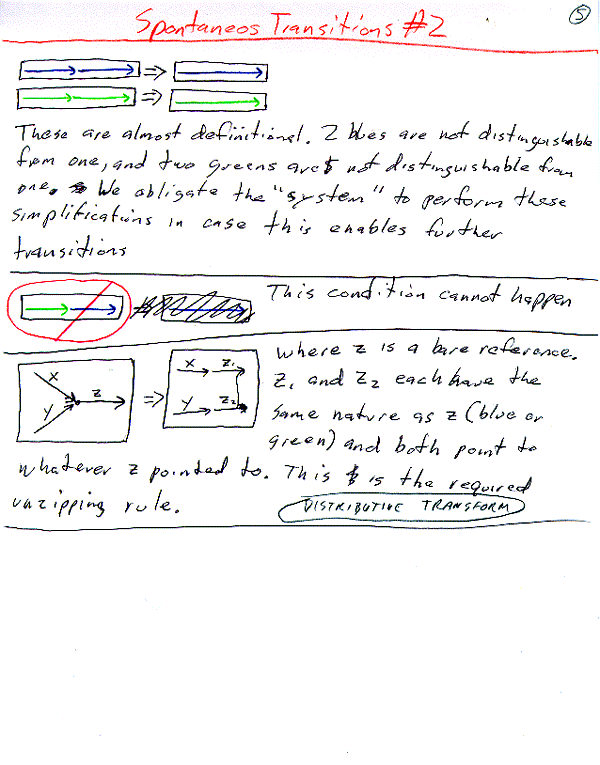 Spontaneos Transitions #2
5
These are almost definitional. 2 blues are not distinguishable
from one, and two greens are not distinguishable from
one. We obligate the "system" to perform these
simplifications in case this enables further
transitions
This condition cannot happen
X
Y
Z
X Z1
Y Z2
where z is a bare reference.
Z1 and Z2 each have the
same nature as z (blue or
green) and both point to
whatever z pointed to. This is the required
unzipping rule.
DISTRIBUTIVE TRANSFORM